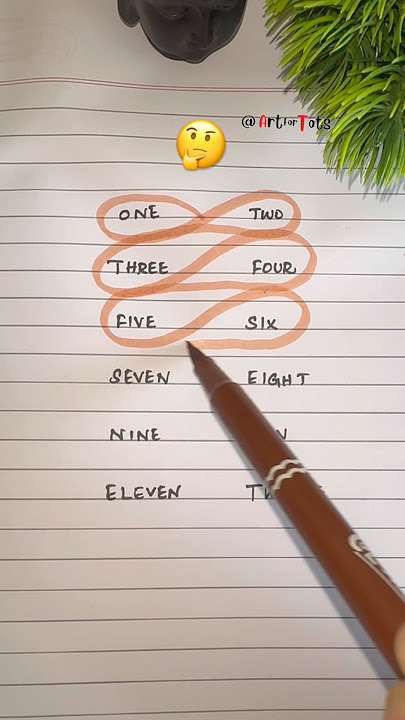 @ArtforTots
ONE TWO
THREE FOUR
FIVE SIX
SEVEN EIGHT
NINE
ELEVEN